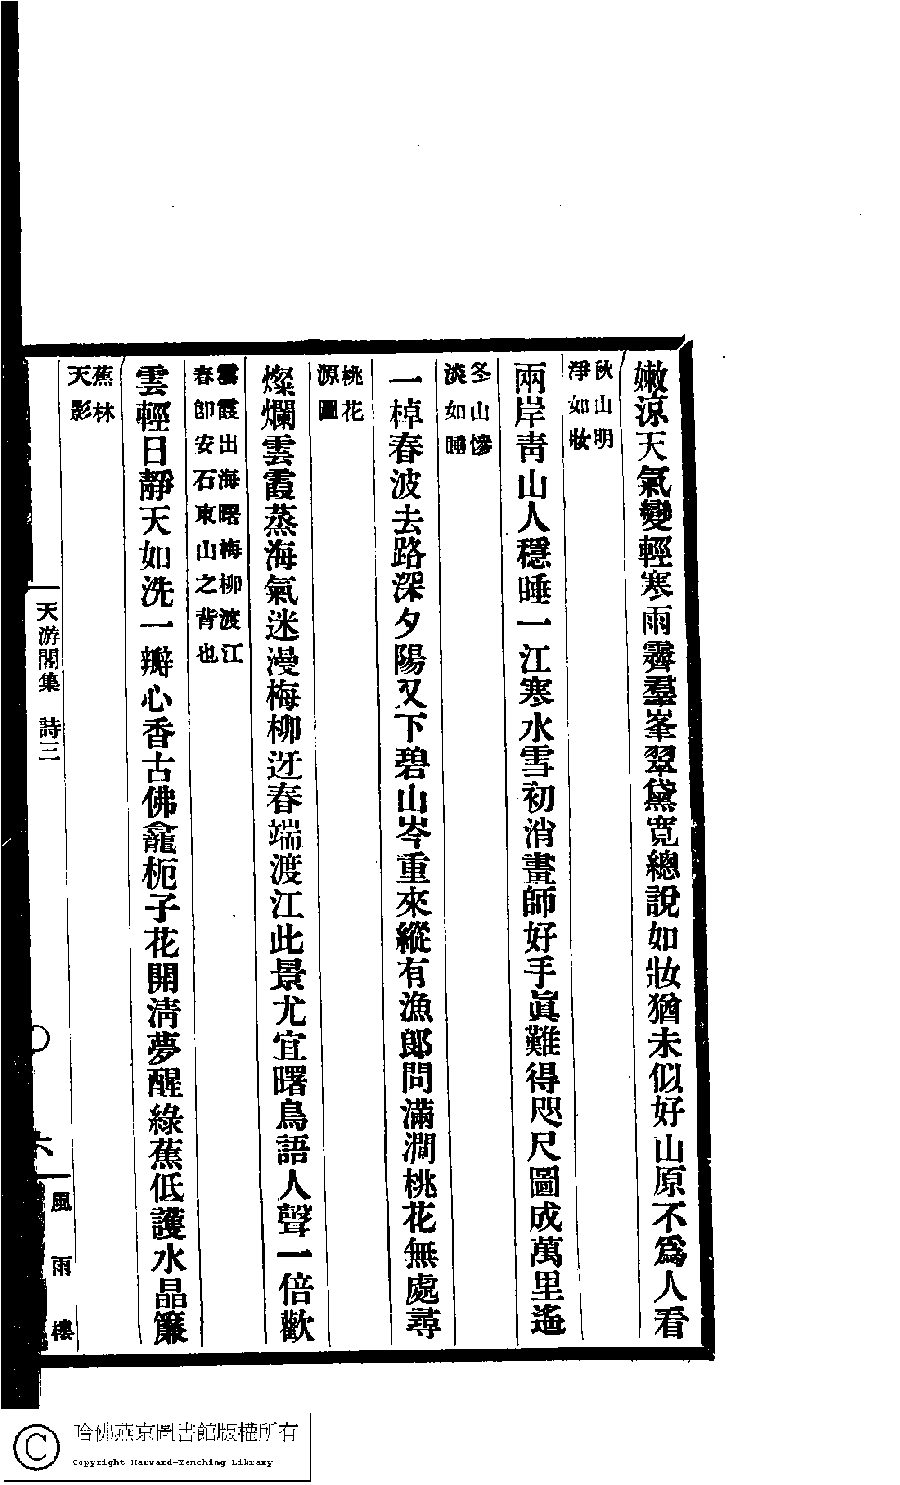 嫩涼天氣變輕寒雨霽羣峯翠黛寬總說如妝猶未似好山原不爲人看
秋山明
淨如妝
兩岸靑山人穩睡一江寒水雪初消畫師好手眞難得咫尺圖成萬里遙
冬山慘
淡如睡
一棹春波去路深夕陽又下碧山岑重來縱有漁郎問滿澗桃花無處尋
桃花
源圖
燦爛雲霞蒸海氣迷漫梅柳迓春端渡江此景尤宜曙鳥語人聲一倍歡
雲霞出海曙梅柳渡江
春卽安石東山之背也
雲輕日靜天如洗一瓣心香古佛龕梔子花開淸夢醒綠蕉低護水晶簾
蕉林
天影
天游閣集 詩三
六
風雨樓
哈佛燕京圖書館版權所有
Copyright Harvard-Yenching Library